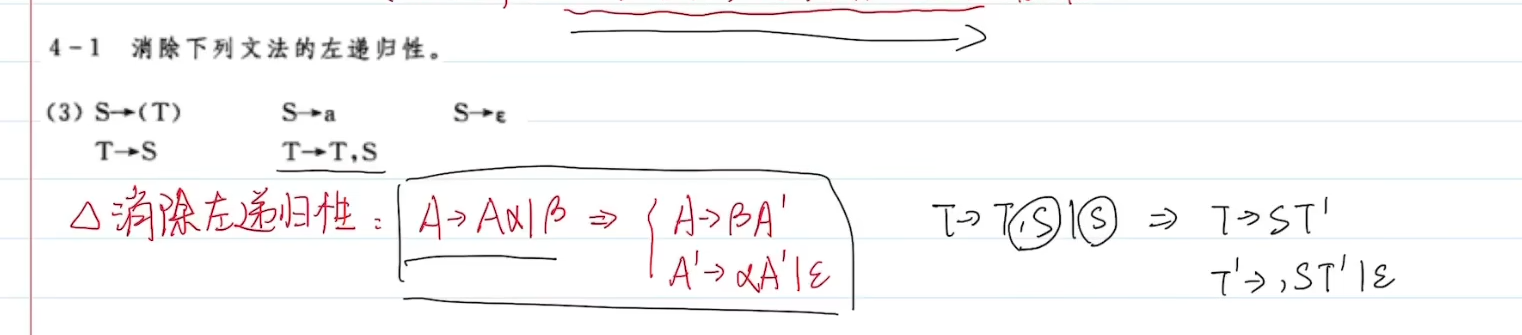 4-1 消除下列文法的左递归性。
(3) S→(T) S→a S→ε
T→S T→T,S
△消除左递归性: A→Aα|β ⇒ { A→βA' T→T,S|S ⇒ T→ST'
A'→αA'|ε T'→,ST'|ε